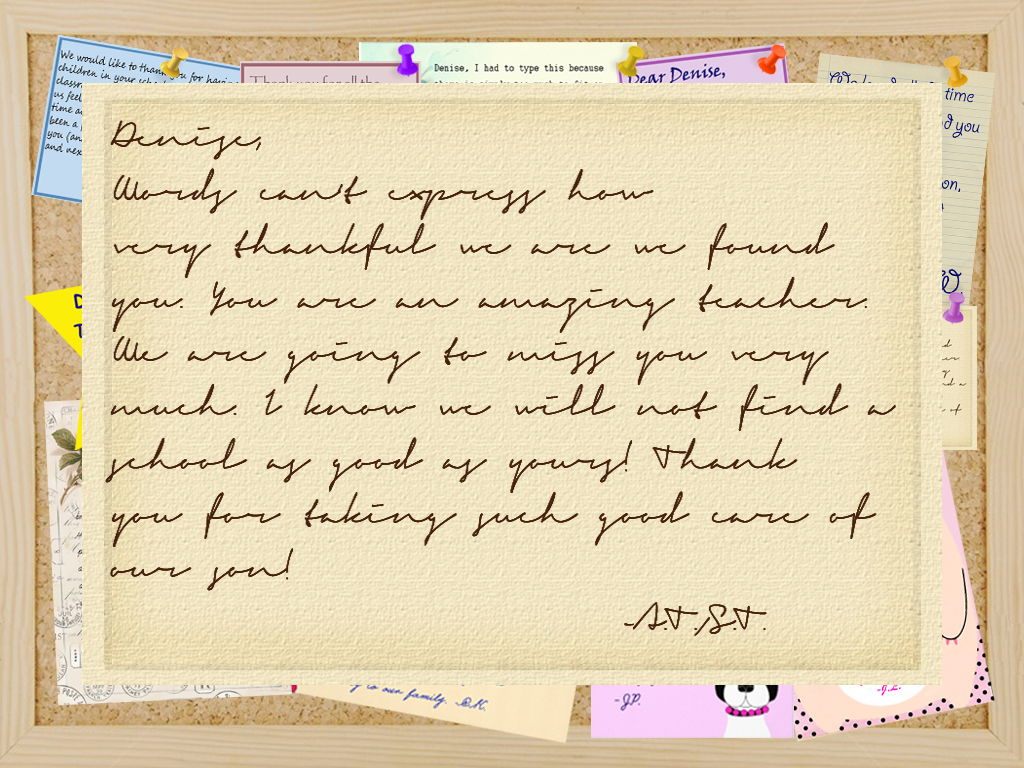 Denise,
Words can't express how
very thankful we are we found
you. You are an amazing teacher.
We are going to miss you very
much. I know we will not find a
school as good as yours! Thank
you for taking such good care of
our son!
-A.T./S.T.
We would like to thank you for
children in your
us feel
time
been a
you
and
Thank you for all the
Denise, I had to type this because
Dear Denise,
time
you
on,
W.
to our family. B.K.
-J.P.
-J.L.